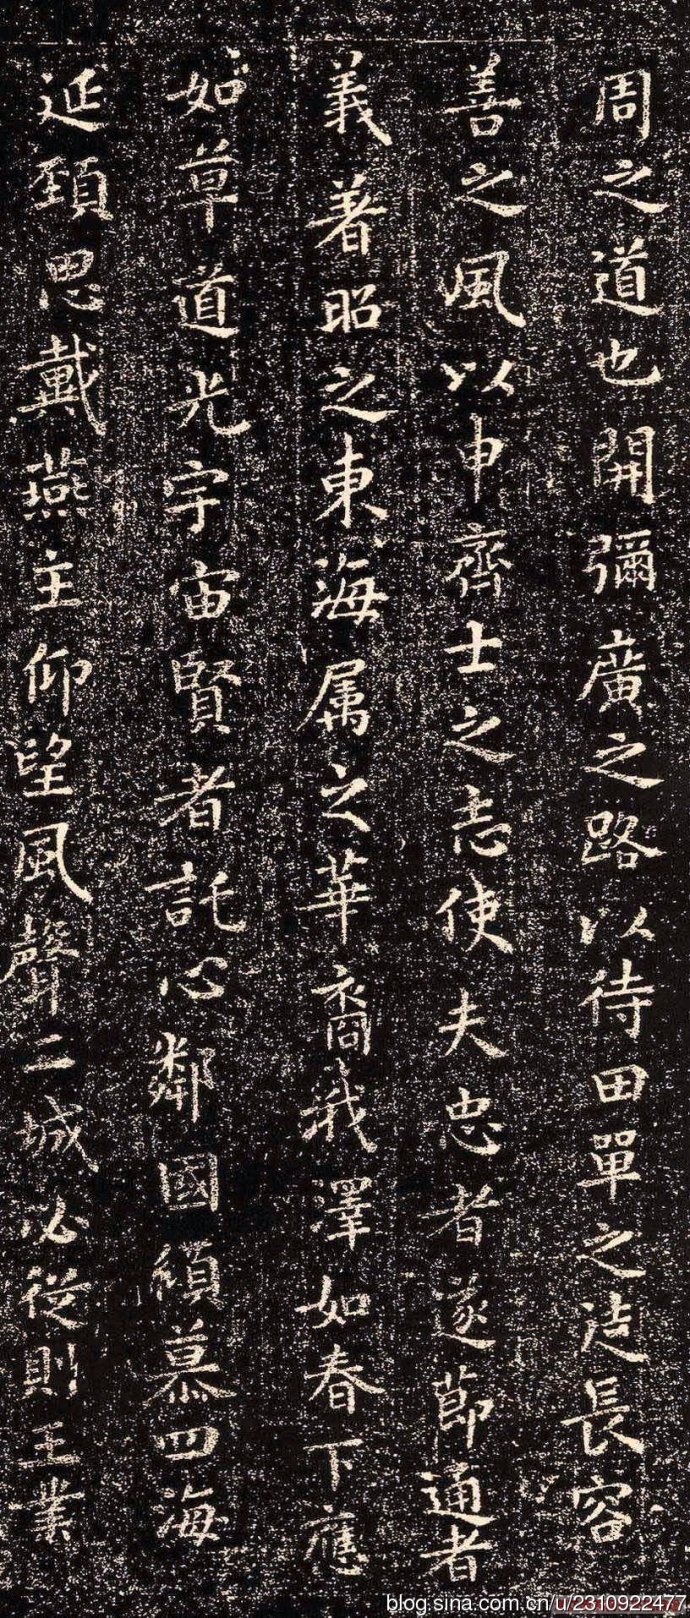 周之道也開彌廣之路以待田單之徒長容
善之風以申齊士之志使夫忠者遂節通者
義著昭之東海属之華裔我澤如春下應
如草道光宇宙賢者託心鄰國傾慕四海
延頚思戴燕主仰望風聲二城必從則王業
blog.sina.com.cn/u/2310922477